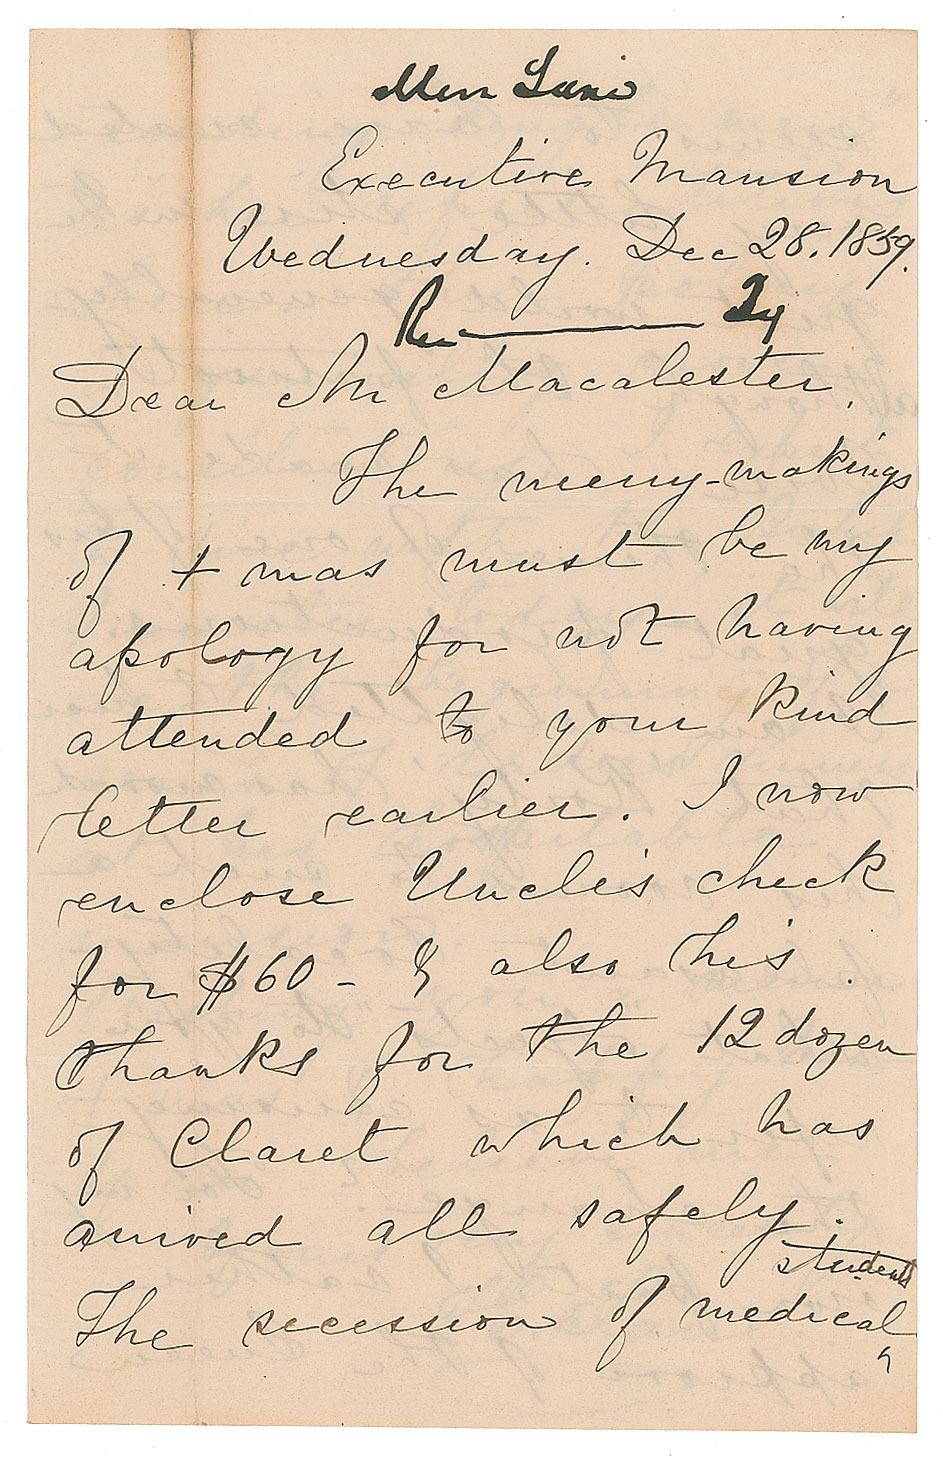 Miss Lane
Executive Mansion
Wednesday. Dec 28. 1859.
Dear Mr Macalester,
The merry-makings
of Xmas must be my
apology for not having
attended to your kind
letter earlier. I now
enclose Uncle's check
for $60 - & also his
thanks for the 12 dozen
of Claret which has
arrived all safely.
students
The secession of medical